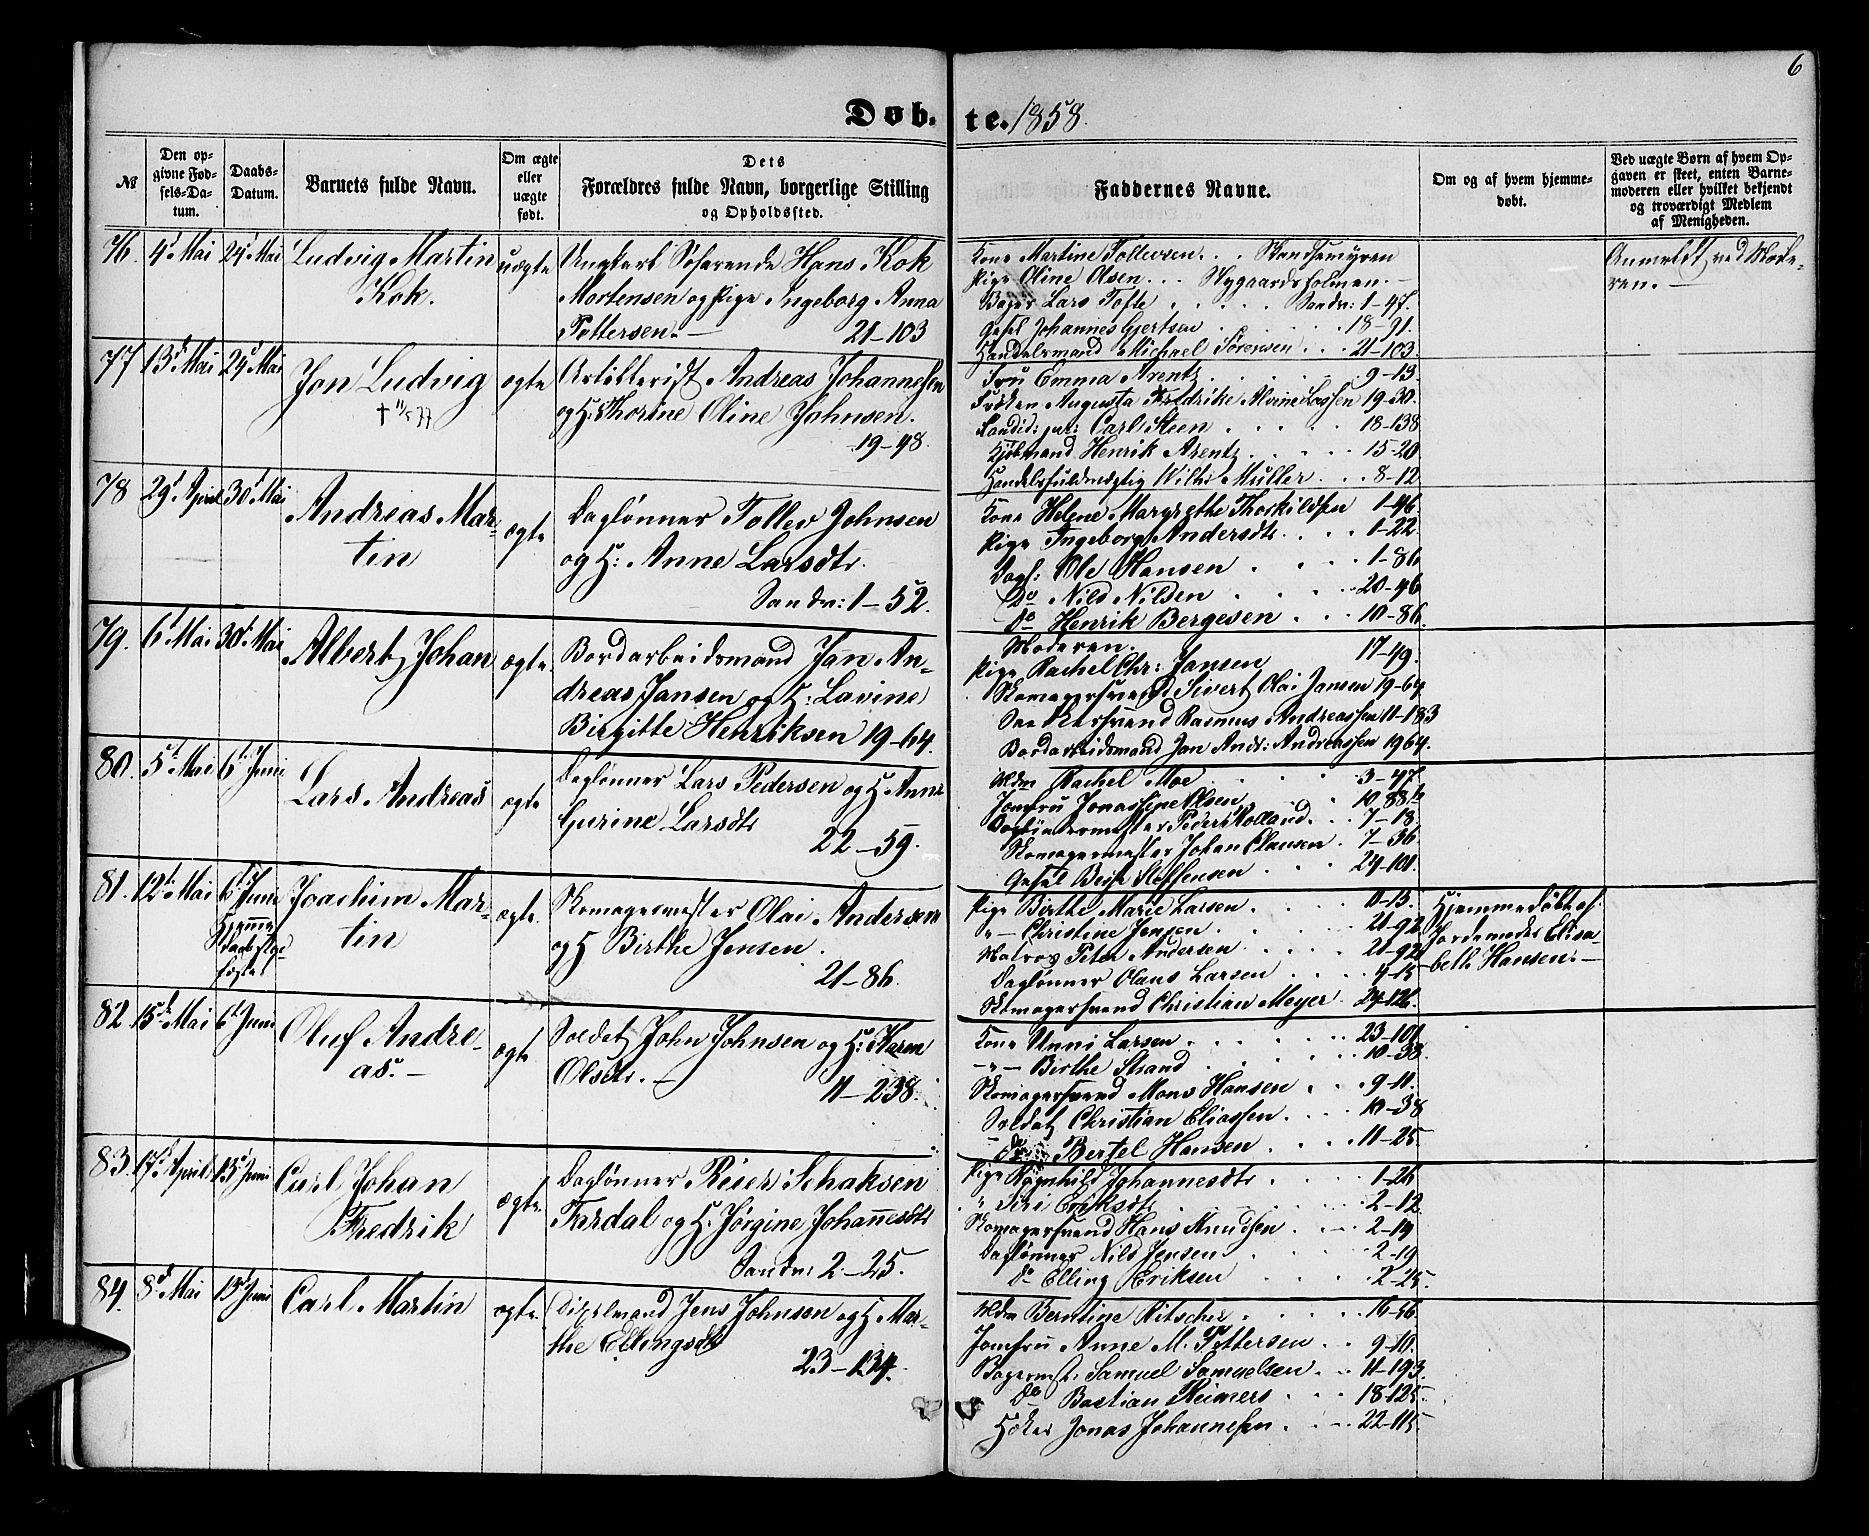 6
Døbte. 1858.
№
Den opgivne Fødsels-Datum.
Daabs-Datum.
Barnets fulde Navn.
Om ægte eller uægte født.
Dets Forældres fulde Navn, borgerlige Stilling og Opholdssted.
Faddernes Navne.
Om og af hvem hjemmedøbt.
Ved uægte Børn af hvem Opgaven er skeet, enten Barnemoderen eller hvilket bekjendt og troværdigt Medlem af Menigheden.
76. 4d Mai 24d Mai Ludvig Martin
Kok.
uægte
Ungkarl Søfarende Hans Kok
Mortensen og Pige Ingeborg Anna
Pettersen. — 21-103
Kone Martine Tollevsen. . . Skandsemyren
Pige Oline Olsen. . . Nygaardsholmen. —
Bager Lars Tofte . . . . . Sandv: 1-47.
Gesel Johannes Gjertsen . . . . . 18-91.
Handelsmand Michael Sørensen . . . 21-103.
Anmeldt ved Mode-
ren. —
77 13d Mai 24d Mai Jon Ludvig
† 11/5 77
ægte
Artillerist Andreas Johannesen
og H: Thorine Oline Johnsen.
19-48.
Fru Emma Arentz . . . . . . 9-13
Frøken Augusta Fredrikke Lassen 19-30.
Kandid: jur: Carl Steen . . . . . 18-138
Kjøbmand Henrik Arentz . . . . . 15-20
Handelsfuldmægtig Wilh: Müller . . . 8-12
78 29d April 30d Mai Andreas Mar-
tin
ægte
Daglønner Tollev Johnsen
og H: Anne Larsdtr.
Sandv: 1-52.
Kone Helene Margrethe Thorkildsen 1-46.
Pige Ingeborg Andersdtr. . . . 1-22.
Dagl: Ole Hansen . . . . 1-86
Do Nils Nilsen . . . . . 20-46
Do Henrik Bergesen . . . 10-86.
79. 6d Mai 30d Mai Albert Johan
ægte.
Bordarbeidsmand Jan An-
dreas Jansen og H: Lavine
Birgitte Henriksen 19-64.
Moderen.
Pige Rachel Chr: Jansen 17-49.
Skomagersvend Sivert Olai Jansen 19-64
Rasmus Andreassen 11-183
Bordarbeidsmand Jan Andr: Andreassen 19 64.
80. 5d Mai 6d Juni Lars Andreas
ægte
Daglønner Lars Pedersen og H Anne
Gurine Larsdtr
22-59.
Mdm Rachel Moe . . . . . 3-47.
Jomfru Jonassine Olsen . 10 88b
Peder Kolland . . . 7-18.
Skomagermester Johan Clausen . 7-36.
Gesel Berje Steffensen . . . 24-101.
81. 12d Mai 6d Juni
Hjemme-
daab
Joachim Mar-
tin
ægte.
Skomagermester Olai Andersen
og H Birthe Jensen.
21-86.
Pige Birthe Marie Larsen . . . . 10-15.
" — Christine Jensen . . . . . . 21-92
Matros Peter Andersen . . . . . 21-92
Daglønner Olaus Larsen . . . . 4-15
Skomagersvend Christian Meyer . 24-126.
Hjemmedøbt af
Jordemoder Elisa-
beth Hansen. —
82. 15d Mai 6d Juni Oluf Andre-
as. —
ægte
Soldat John Johnsen og H: Karen
Olsdtr. —
11-238.
Kone Unni Larsen . . . . . . 23-101
— " — Birthe Strand . . . . 10-38
Skomagersvend Mons Hansen . . . 9-11.
Soldat Christian Eliassen . . . . 10-38
Do Bertel Hansen . . . . 11-25
83. 17d April 13d Juni Carl Johan
Fredrik
ægte.
Daglønner Reier Schaksen
Fardal og H: Jørgine Johannesdtr
Sandv: 2-25.
Pige Ragnhild Johannesdtr . . . 1-26
" Siri Eriksdtr . . . . . . 2-12
Skomagersvend Hans Knudsen . . . 2-19
Daglønner Nils Jensen . . . . . 2-19
Do Elling Eriksen . . . . 2-25.
84. 8d Mai 13d Juni Carl Martin
ægte.
Jens Johnsen og H Mar-
the Ellingsdtr
23-134.
Mdm Berntine Ritscher . . . . 16-56
Jomfru Anne M. Pettersen . . 9-10.
Bagermst. Samuel Samuelsen . . 11-193
Do Bastian Reimers . . . 18-125.
Høker Jonas Johannesen . . . . 22-115